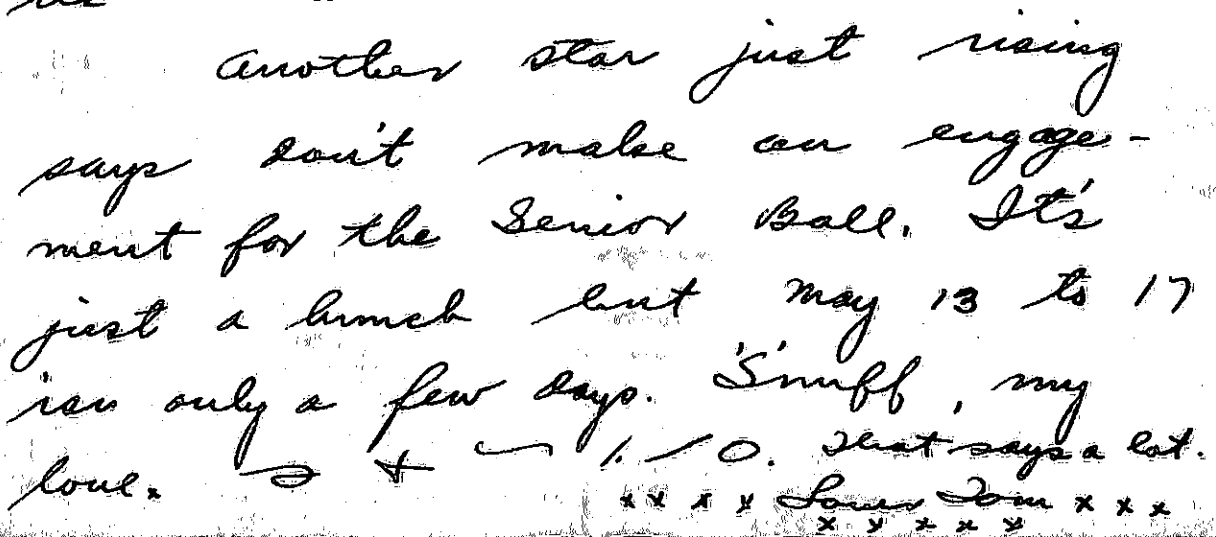 Another star just rising
says don't make an engage-
ment for the Senior Ball. It's
just a hunch but May 13 to 17
ian only a few days. 'S'nuff, my
love. That says a lot.
x x x x Tom x x x
x x x x x